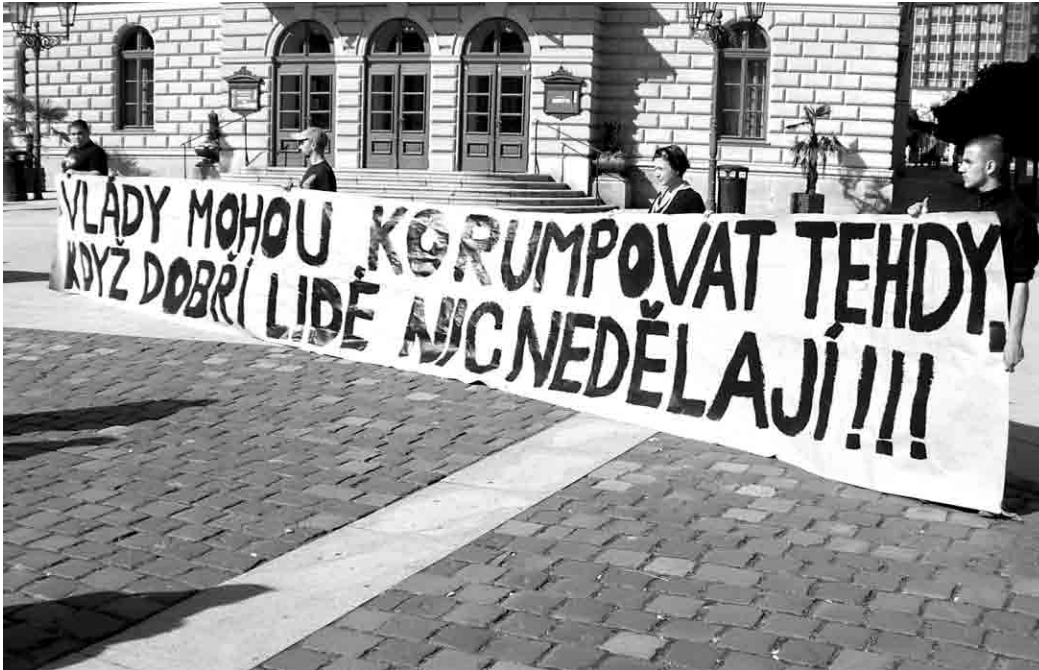 VLÁDY MOHOU KORUMPOVAT TEHDY,
KDYŽ DOBŘÍ LIDÉ NIC NEDĚLAJÍ!!!